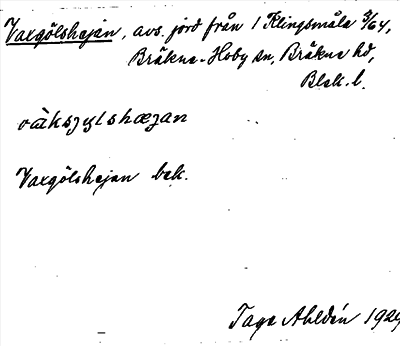 Vaxgölshejan, avs. jord från 1 Klingsmåla 3/64,
Bräkne-Hoby sn, Bräkne hd,
Blek. l.
vàksjylshæjan
Vaxgölshejan bek.
Tage Ahldén 1929